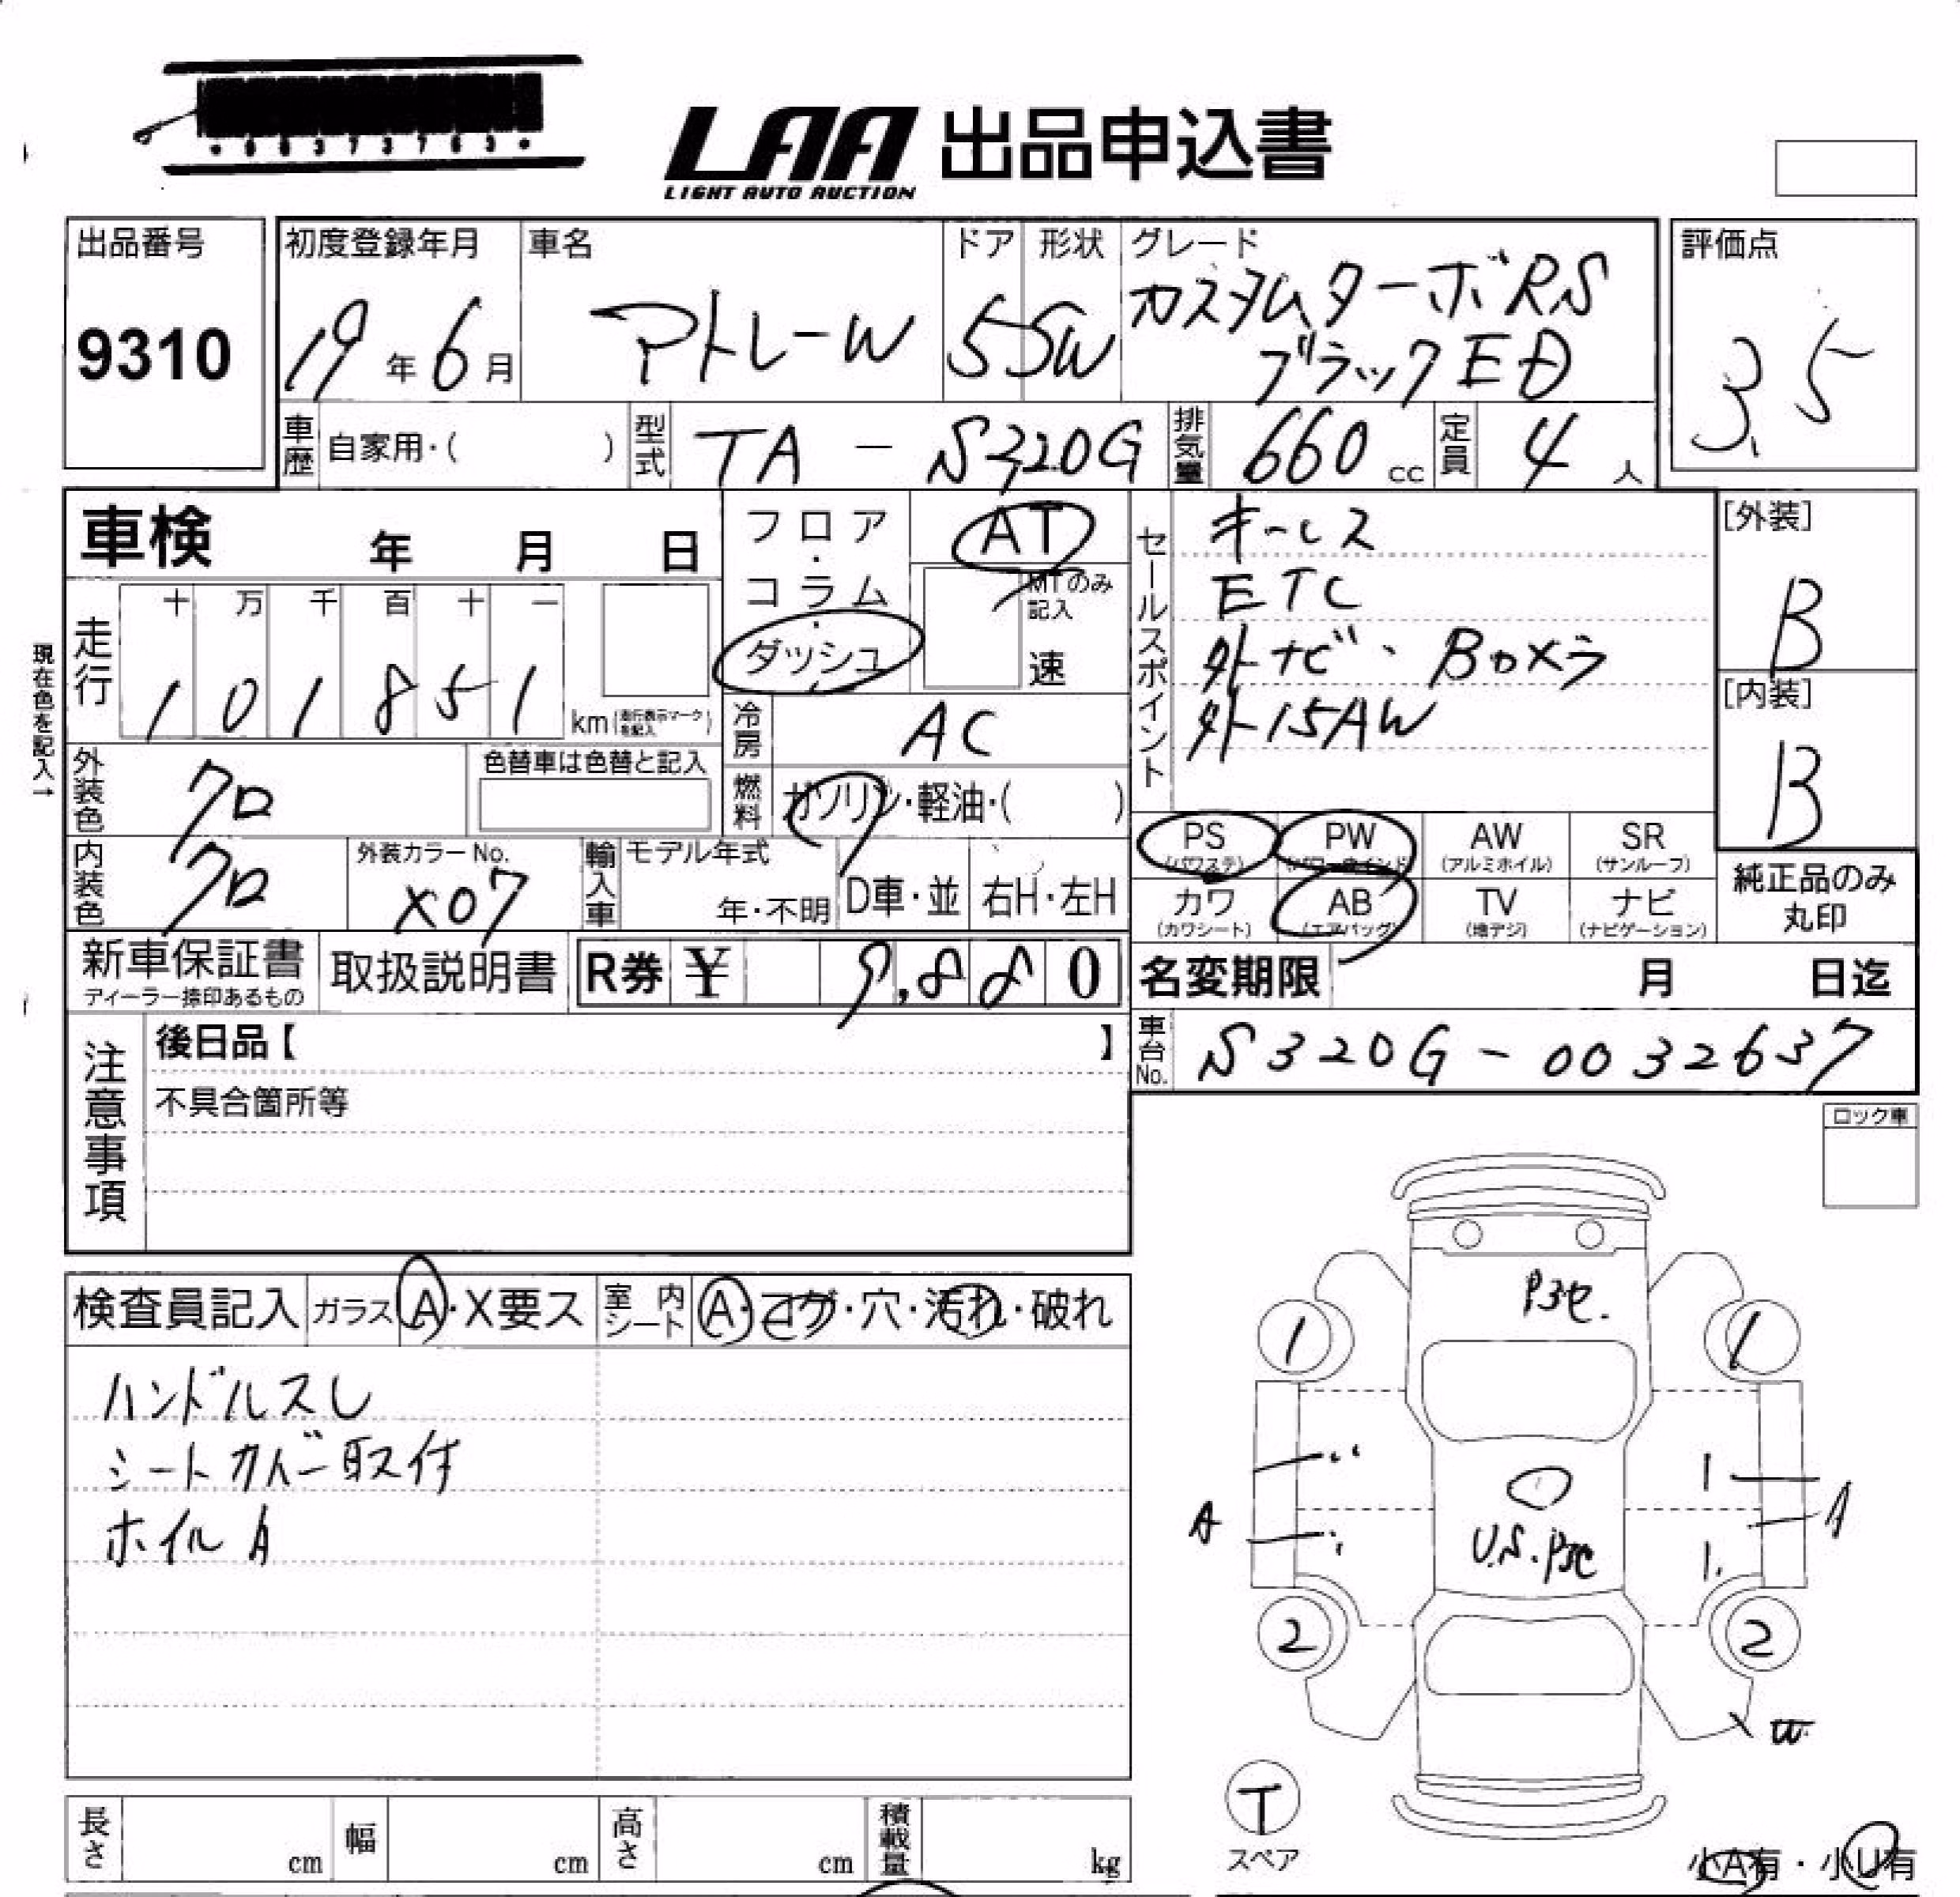 LAA 出品申込書
LIGHT AUTO AUCTION
出品番号
9310
初度登録年月
19年6月
車名
アトレーW
ドア
5
形状
SW
グレード
カスタムターボRS
ブラックED
評価点
3.5
車歴
自家用・( )
型式
TA - S320G
排気量
660 cc
定員
4 人
車検 年 月 日
現在色を記入→
走行
十 万 千 百 十 一
1 0 1 8 5 1 km (走行表示マークを記入)
フロア・コラム・ダッシュ
AT
MTのみ記入
速
冷房
AC
燃料
ガソリン・軽油・( )
セールスポイント
キーレス
ETC
外ナビ・Bカメラ
外15AW
[外装]
B
[内装]
B
外装色
クロ
色替車は色替と記入
内装色
クロ
外装カラーNo.
X07
輸入車
モデル年式
年・不明
D車・並
右H・左H
PS (パワステ)
PW (パワーウインド)
AW (アルミホイル)
SR (サンルーフ)
カワ (カワシート)
AB (エアバッグ)
TV (地デジ)
ナビ (ナビゲーション)
純正品のみ
丸印
新車保証書
ディーラー捺印あるもの
取扱説明書
R券 ¥ 9,880
名変期限 月 日迄
車台No.
S320G - 0032637
注意事項
後日品【 】
不具合箇所等
ロック車
検査員記入
ガラス A・X要ス
室内シート A・コゲ・穴・汚れ・破れ
ハンドルスレ
シートカバー取付
ホイルA
1
1
A
1
1.
A
U.S.
2
2
W
T
スペア
長さ cm
幅 cm
高さ cm
積載量 kg
小A有・小U有